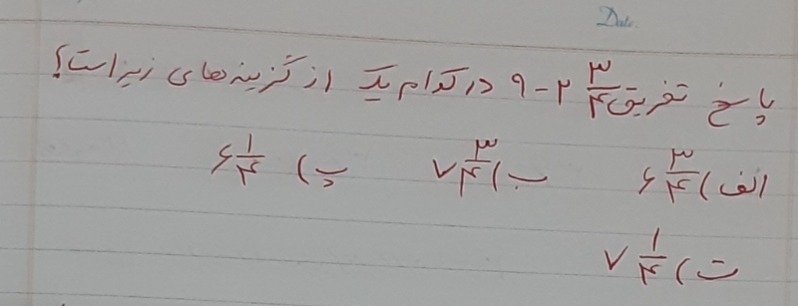 Date:
پاسخ تفریق ۹-۲ ۳/۴ در کدام یک از گزینه های زیر است؟
الف) ۶ ۳/۴ ب) ۷ ۳/۴ پ) ۶ ۱/۴
ت) ۷ ۱/۴